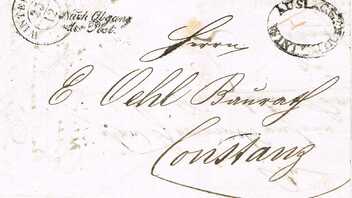 WINTE
Nach Abgang
der Post.
Herrn
E. Oehl Baurath
Constanz